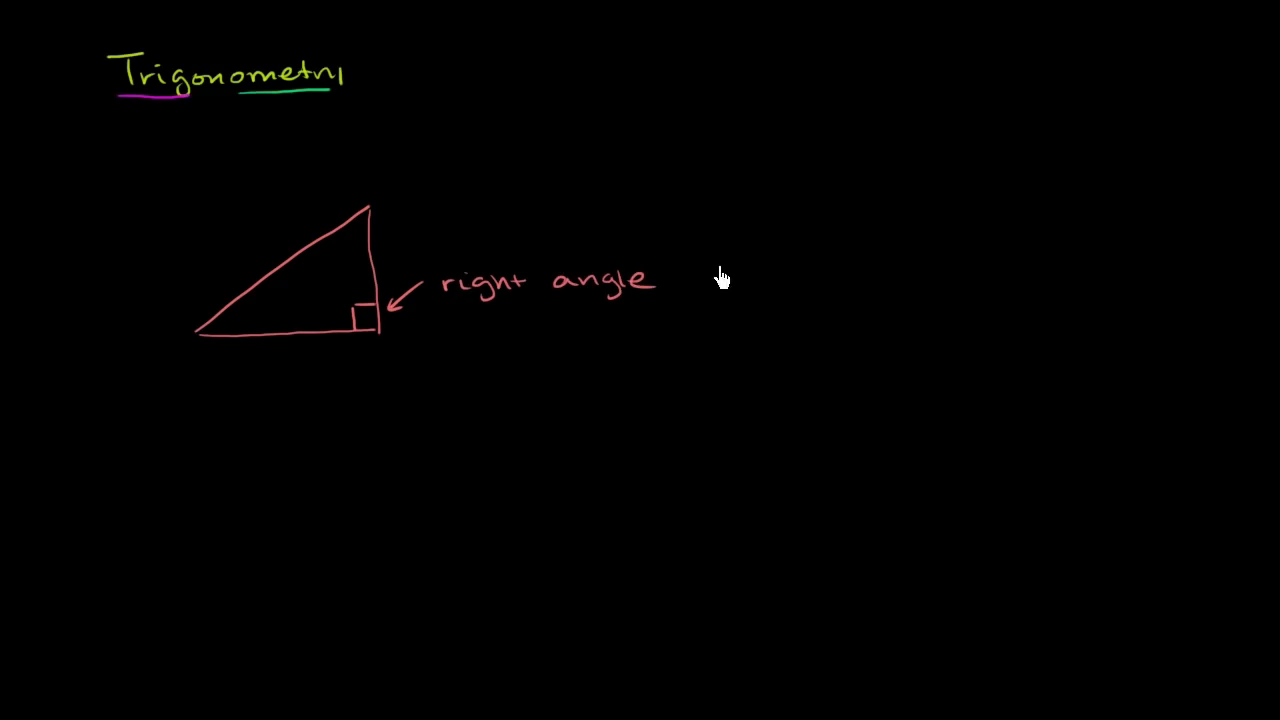 Trigonometry
right angle